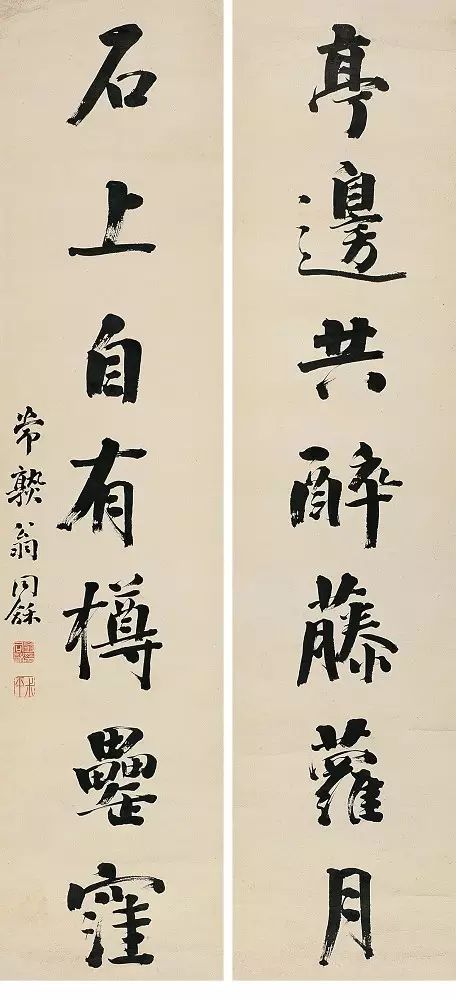 亭邊共醉藤蘿月
石上自有樽罍窪
常熟翁同龢